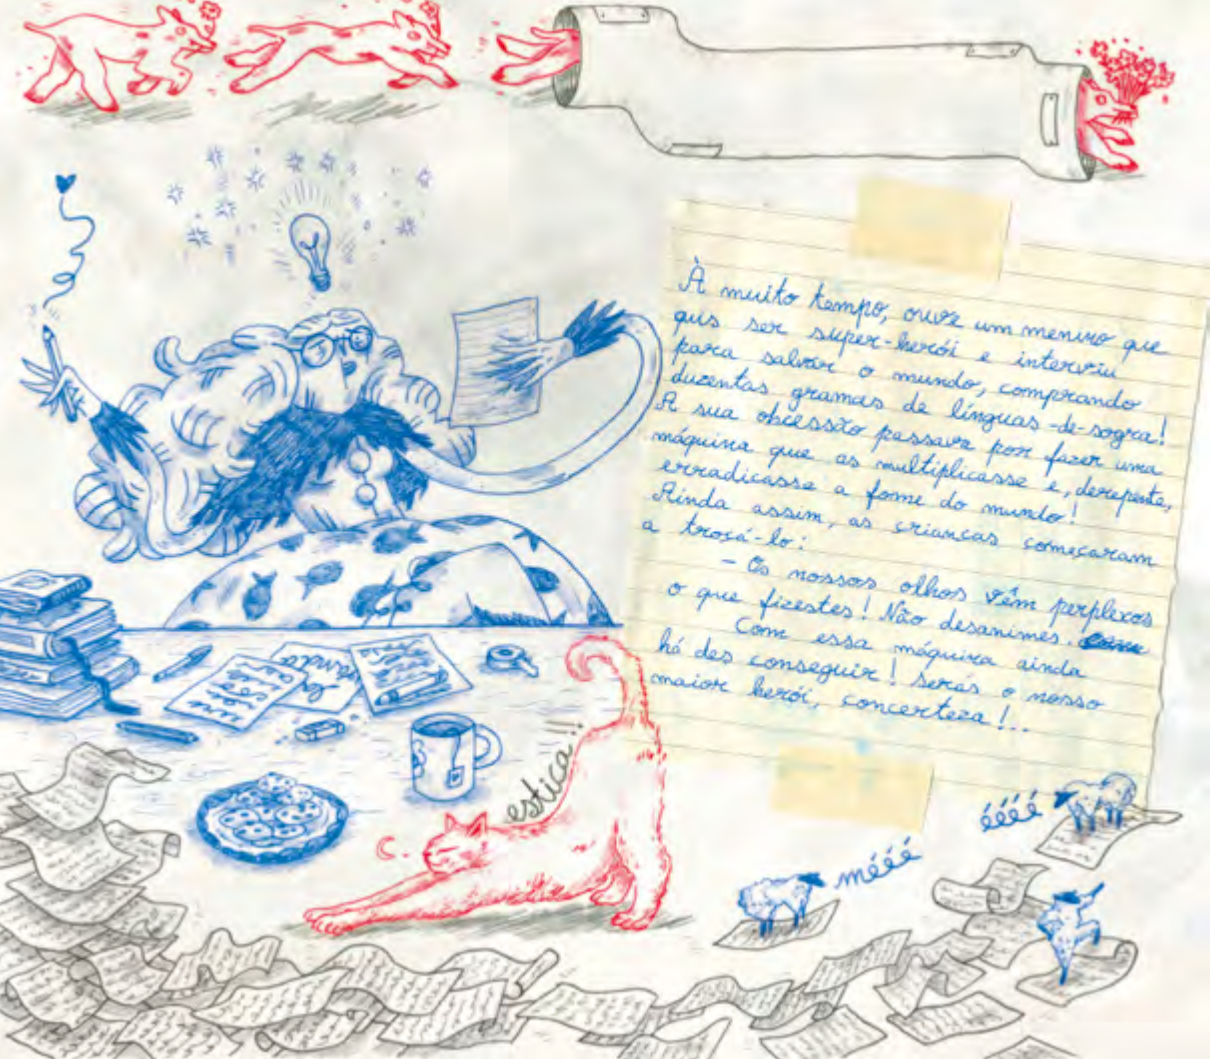 À muito tempo, ouve um menino que
qus ser super-herói e interviu
para salvar o mundo, comprando
duzentas gramas de línguas-de-sogra!
A sua obcessão passava por fazer uma
máquina que as multiplicasse e, derepente,
erradicasse a fome do mundo!
Ainda assim, as criancas começaram
a troçá-lo:
- Os nossos olhos vêm perplexos
o que fizestes! Não desanimes.
Com essa máquina ainda
há des conseguir! Serás o nosso
maior herói, concerteza!..
estica!!
éééé
mééé